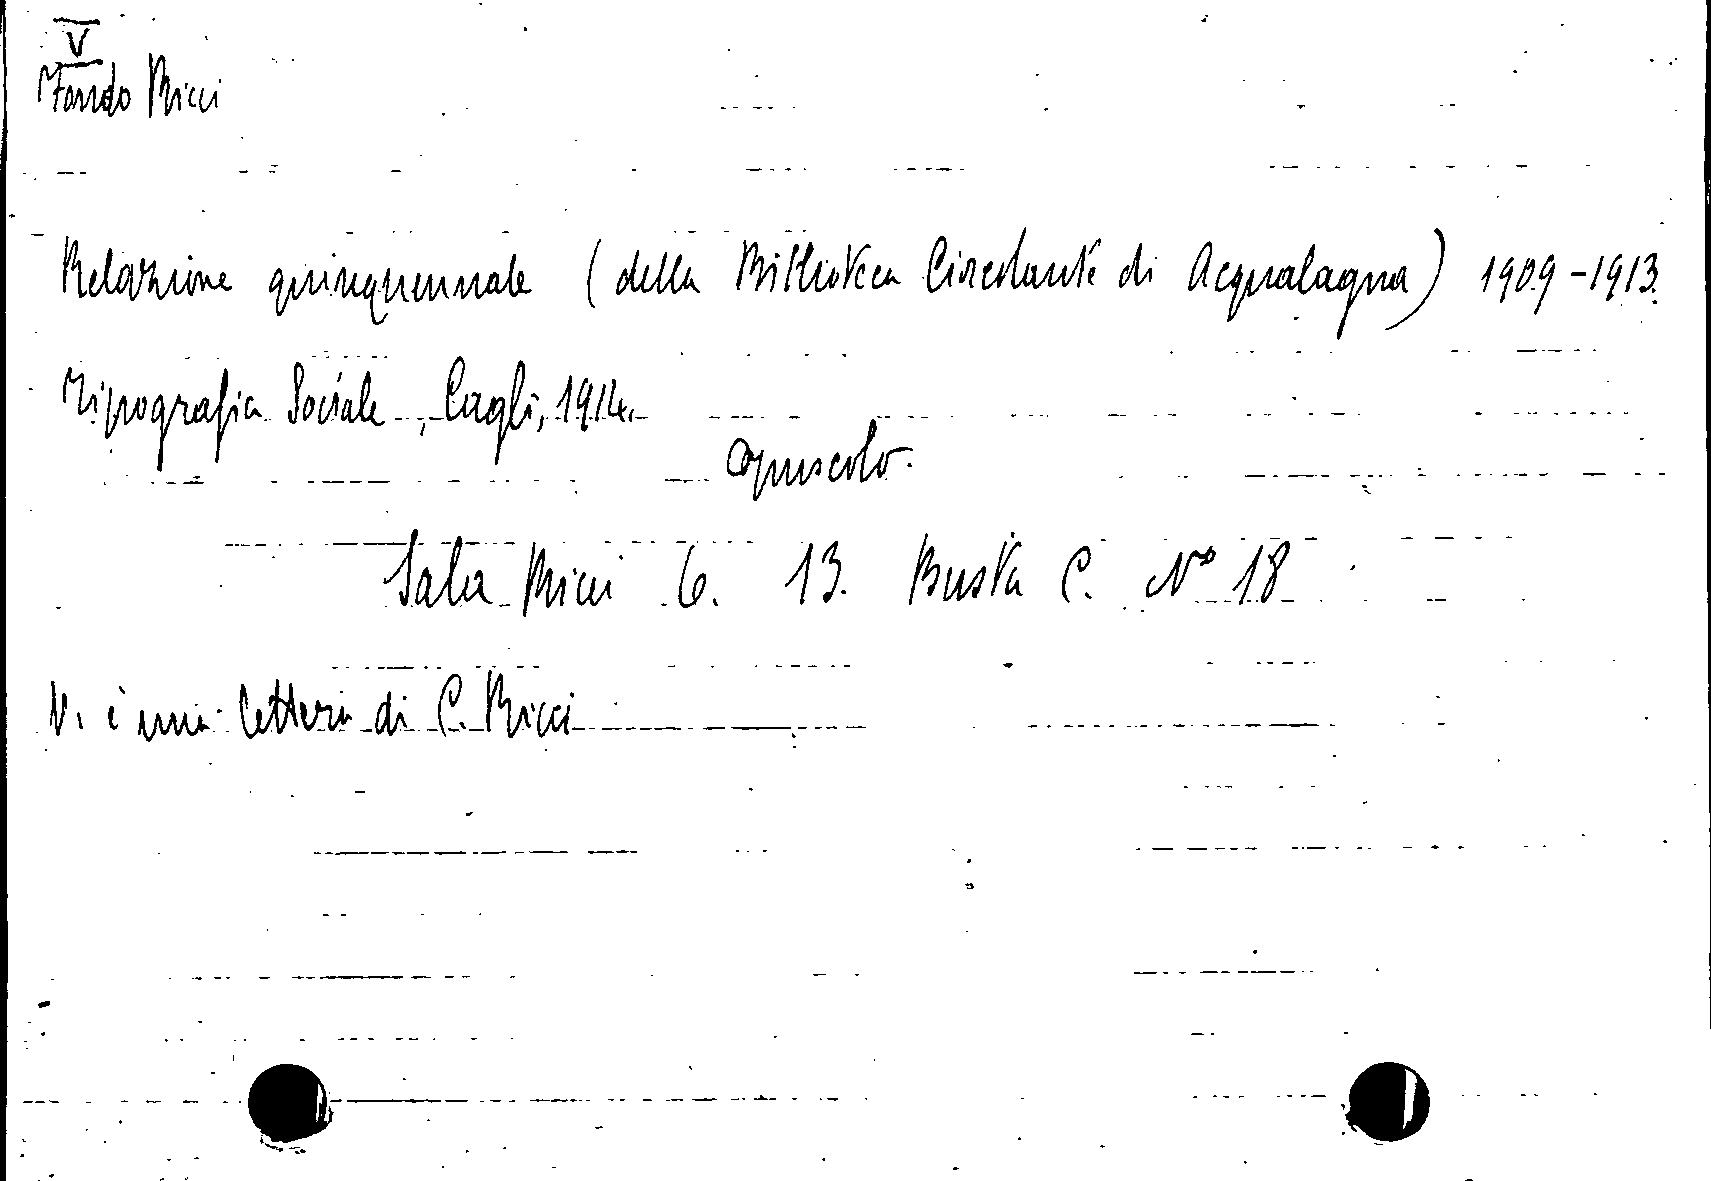 V
Fondo Ricci
Relazione quinquennale (della Biblioteca Circolante di Acqualagna) 1909-1913.
Tipografia Sociale, Cagli, 1914.
Opuscolo.
Sala Ricci 6. 13. Busta C. N° 18
V. è una lettera di C. Ricci